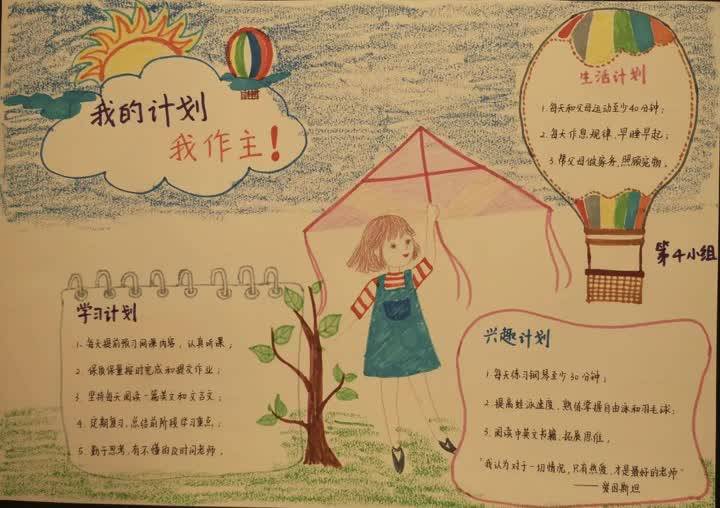 我的计划
我作主!
生活计划
1.每天和父母运动至少40分钟;
2.每天作息规律,早睡早起;
3.帮父母做家务,照顾宠物。
第4小组
学习计划
1.每天提前预习网课内容,认真听课;
2.保质保量按时完成和提交作业;
3.坚持每天阅读一篇英文和文言文;
4.定期复习,总结前阶段学习重点;
5.勤于思考,有不懂的及时问老师。
兴趣计划
1.每天练习钢琴至少30分钟;
2.提高蛙泳速度,熟练掌握自由泳和羽毛球;
3.阅读中英文书籍,拓展思维。
"我认为对于一切情况,只有热爱,才是最好的老师"
——爱因斯坦